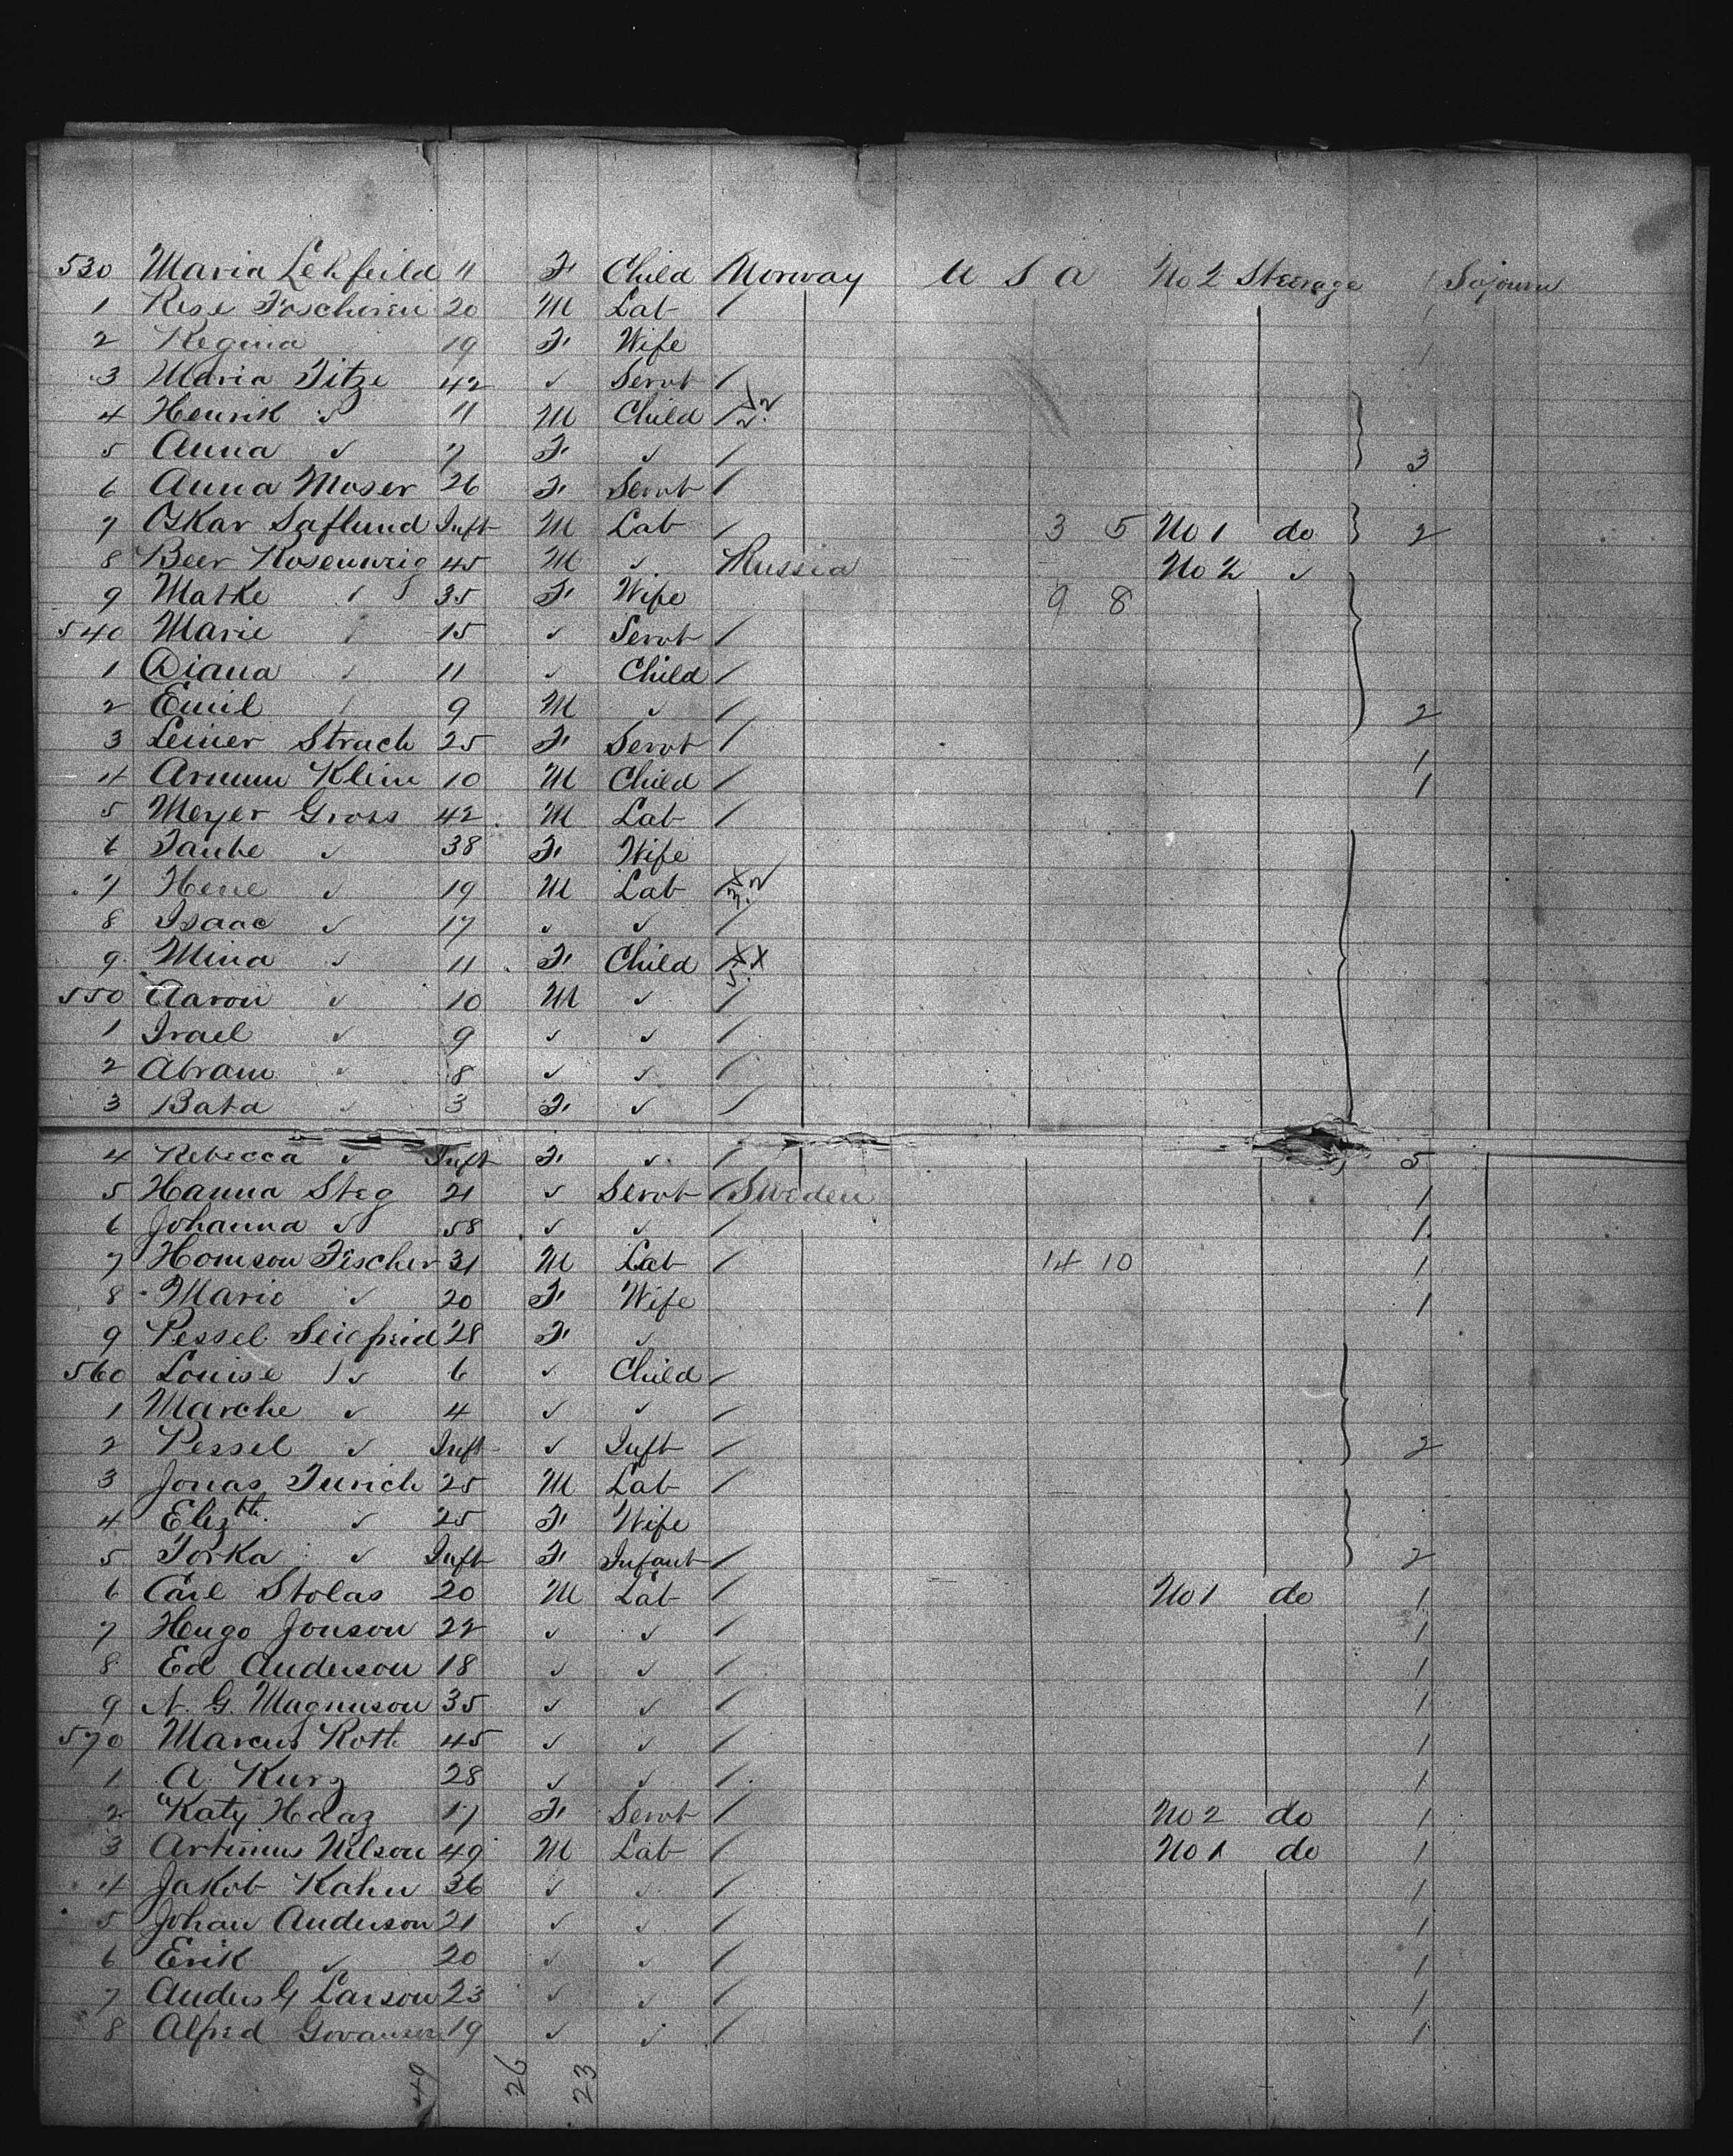 530 Maria Lehfeild 11 F Child Norway U S A No 2 Steerage 1 Sojourn
1 20 M Lab /
2 Regina 19 F Wife
3 Maria Titze 42 ✓ Servt /
4 Henrik ✓ 11 M Child /
5 Anna ✓ 7 F ✓ / 3
6 Anna Moser 26 F Servt /
7 Oskar Saflund Inft M Lab / 3 5 No 1 do 2
8 Beer Rosenweig 45 M ✓ Russia No 2 ✓
9 Matke 35 F Wife 9 8
540 Marie 15 ✓ Servt /
1 Diana 11 ✓ Child /
2 Emil 9 M ✓ / 2
3 Leiner Strach 25 F Servt / 1
4 Klein 10 M Child / 1
5 Meyer Gross 42 M Lab /
6 Taube ✓ 38 F Wife
7 Hene ✓ 19 M Lab /
8 Isaac ✓ 17 ✓ ✓ /
9 Mina ✓ 11 F Child /
550 Aaron ✓ 10 M ✓ /
1 Israel ✓ 9 ✓ ✓ /
2 Abram ✓ 8 ✓ ✓ /
3 Bata ✓ 3 F ✓ /
4 Rebecca ✓ Inft F ✓ / 5
5 Hanna Steg 21 ✓ Servt / Sweden 1
6 Johanna ✓ 58 ✓ ✓ / 1
7 Homson Fischer 31 M Lab / 14 10 1
8 Marie ✓ 20 F Wife 1
9 Pessel Seigfreid 28 F ✓
560 Louise ✓ 6 ✓ Child /
1 Marche ✓ 4 ✓ ✓ /
2 Pessel ✓ Inft ✓ Inft / 2
3 Jonas Turich 25 M Lab /
4 Elizth. ✓ 25 F Wife
5 Torka ✓ Inft F Infant / 2
6 Carl Stolas 20 M Lab / No 1 do 1
7 Hugo Jonson 22 ✓ ✓ / 1
8 Ed Anderson 18 ✓ ✓ / 1
9 N. G. Magnuson 35 ✓ ✓ / 1
570 Marcus Roth 45 ✓ ✓ / 1
1 A. Kurz 28 ✓ ✓ / 1
2 Katy Haaz 17 F Servt / No 2 do 1
3 Artimus Nilson 49 M Lab / No 1 do 1
4 Jakob Kahn 36 ✓ ✓ / 1
5 Johan Anderson 21 ✓ ✓ / 1
6 Erik ✓ 20 ✓ ✓ / 1
7 Andus G Larson 23 ✓ ✓ / 1
8 Alfred 19 ✓ ✓ / 1
49 26 23